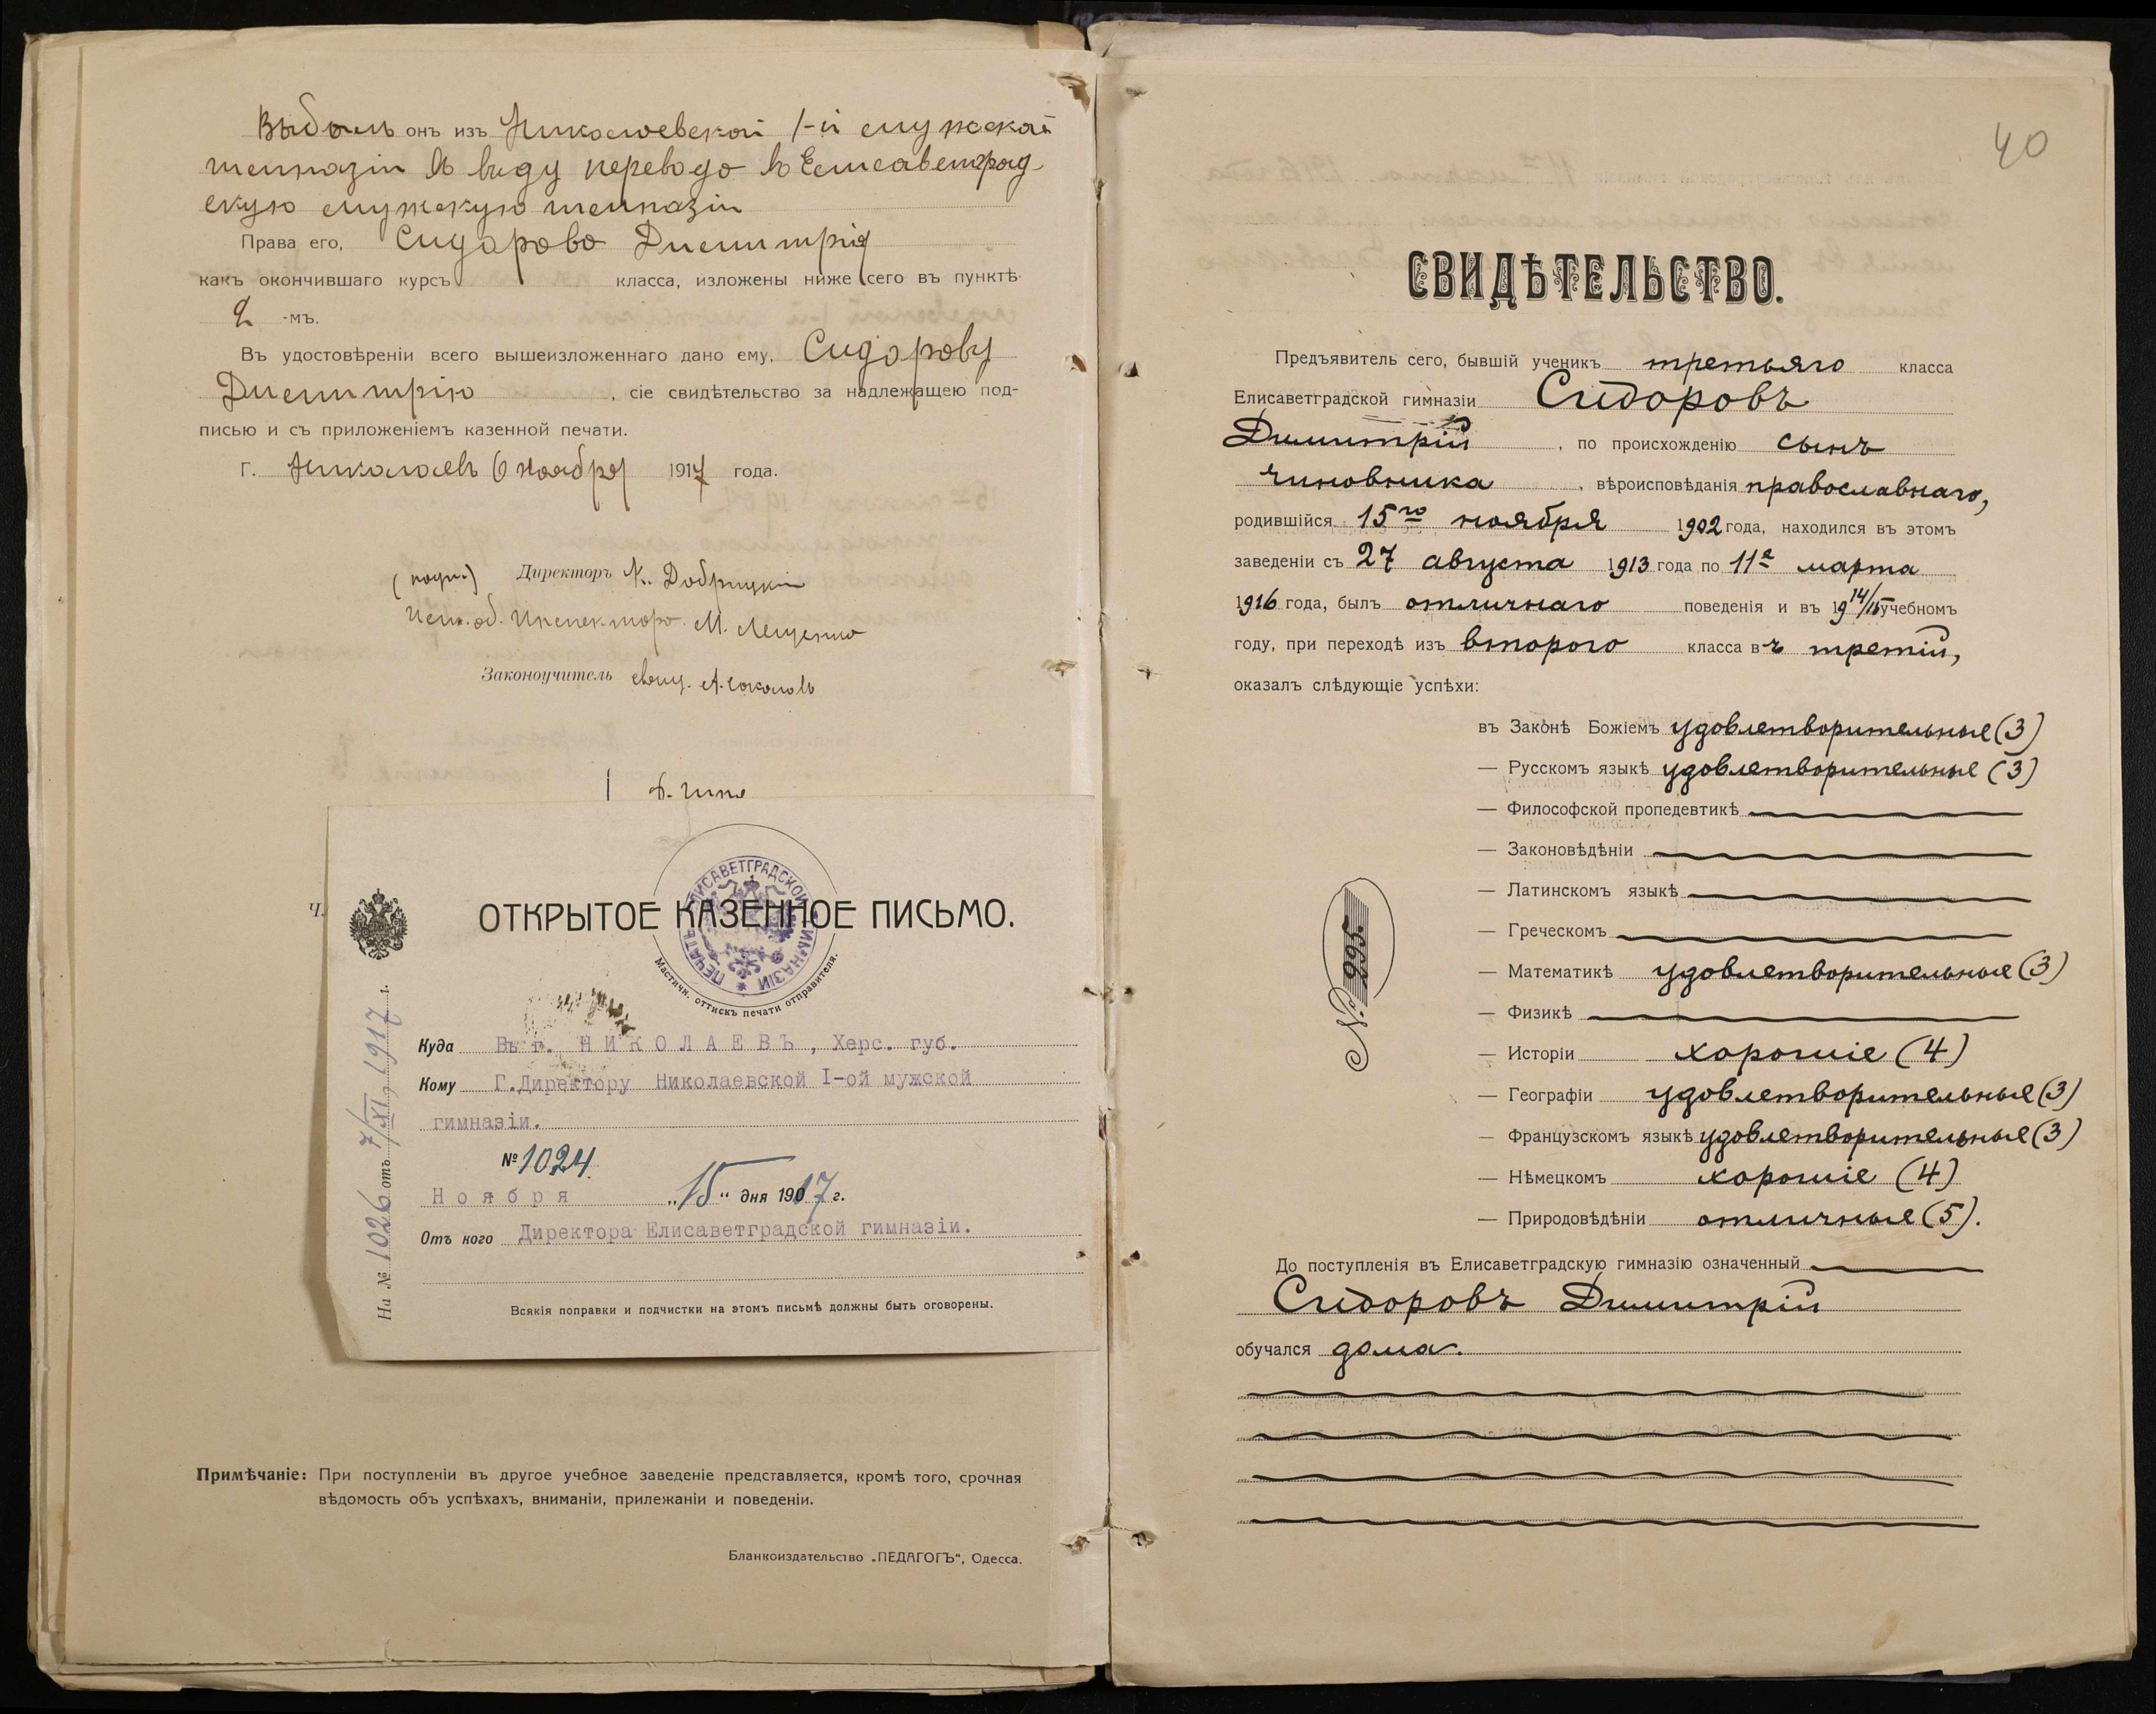 Выбылъ онъ изъ Николаевской 1-й мужской
гимназіи въ виду перевода въ Елисаветград-
скую мужскую гимназію
Права его, Сидорова Димитрія
какъ окончившаго курсъ класса, изложены ниже сего въ пунктѣ
2 -мъ.
Въ удостовѣреніи всего вышеизложеннаго дано ему, Сидорову
Димитрію, сіе свидѣтельство за надлежащею под-
писью и съ приложеніемъ казенной печати.
Г. Николаевъ 6 ноября 1917 года.
(подп.) Директоръ Н. Добрицкій
Исп. об. Инспектора М. Лещенко
Законоучитель свящ. А. Соколовъ
Ч.
ОТКРЫТОЕ КАЗЕННОЕ ПИСЬМО.
ПЕЧАТЬ ЕЛИСАВЕТГРАДСКОЙ ГИМНАЗІИ
Мастичн. оттискъ печати отправителя.
Куда Въ г. НИКОЛАЕВЪ, Херс. губ.
Кому Г.Директору Николаевской I-ой мужской
гимназіи.
№ 1024.
Ноября „15“ дня 1917 г.
Отъ кого Директора Елисаветградской гимназіи.
Всякія поправки и подчистки на этомъ письмѣ должны быть оговорены.
На № 1026 отъ 7/XI, 1917 г.
Примѣчаніе: При поступленіи въ другое учебное заведеніе представляется, кромѣ того, срочная
вѣдомость объ успѣхахъ, вниманіи, прилежаніи и поведеніи.
Бланкоиздательство „ПЕДАГОГЪ“, Одесса.
40
СВИДѢТЕЛЬСТВО.
Предъявитель сего, бывшій ученикъ третьяго класса
Елисаветградской гимназіи Сидоровъ
Димитрій, по происхожденію сынъ
чиновника, вѣроисповѣданія православнаго,
родившійся 15го ноября 1902 года, находился въ этомъ
заведеніи съ 27 августа 1913 года по 11е марта
1916 года, былъ отличнаго поведенія и въ 1914/15 учебномъ
году, при переходѣ изъ второго класса въ третій,
оказалъ слѣдующіе успѣхи:
въ Законѣ Божіемъ удовлетворительные (3)
— Русскомъ языкѣ удовлетворительные (3)
— Философской пропедевтикѣ
— Законовѣдѣніи
— Латинскомъ языкѣ
— Греческомъ
— Математикѣ удовлетворительные (3)
— Физикѣ
— Исторіи хорошіе (4)
— Географіи удовлетворительные (3)
— Французскомъ языкѣ удовлетворительные (3)
— Нѣмецкомъ хорошіе (4)
— Природовѣдѣніи отличные (5).
№ 995
До поступленія въ Елисаветградскую гимназію означенный
Сидоровъ Димитрій
обучался дома.